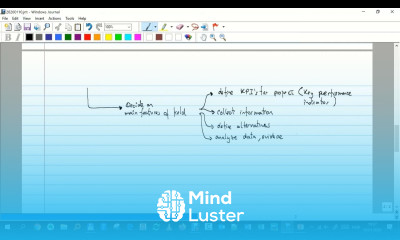 File Edit View Insert Actions Tools Help
Decide on
main features of field
define KPI's for project (key performance
indicator)
collect information
define alternatives
analyze data, evidence
Mind
Luster